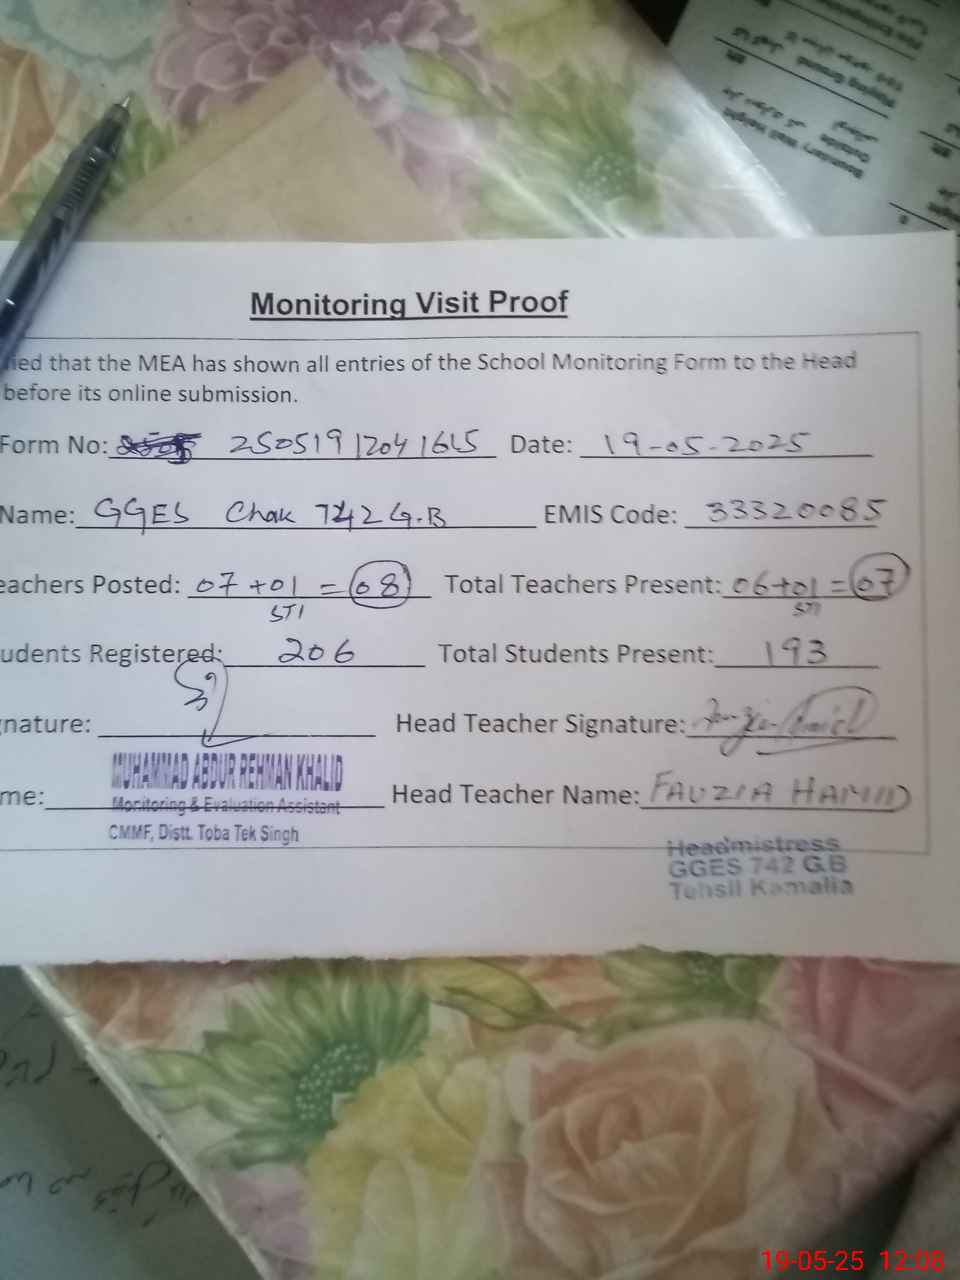 Monitoring Visit Proof
ied that the MEA has shown all entries of the School Monitoring Form to the Head
before its online submission.
Form No: 250519120411645 Date: 19-05-2025
Name: GGES Chak 742 G.B EMIS Code: 33320085
eachers Posted: 07 +01 = 08 Total Teachers Present: 06+01 = 07
STI STI
udents Registered: 206 Total Students Present: 193
nature: Head Teacher Signature:
MUHAMMAD ABDUR REHMAN KHALID
me: Monitoring & Evaluation Assistant Head Teacher Name: FAUZIA HAMID
CMMF, Distt. Toba Tek Singh
Headmistress
GGES 742 G.B
Tehsil Kamalia
19-05-25 12:08